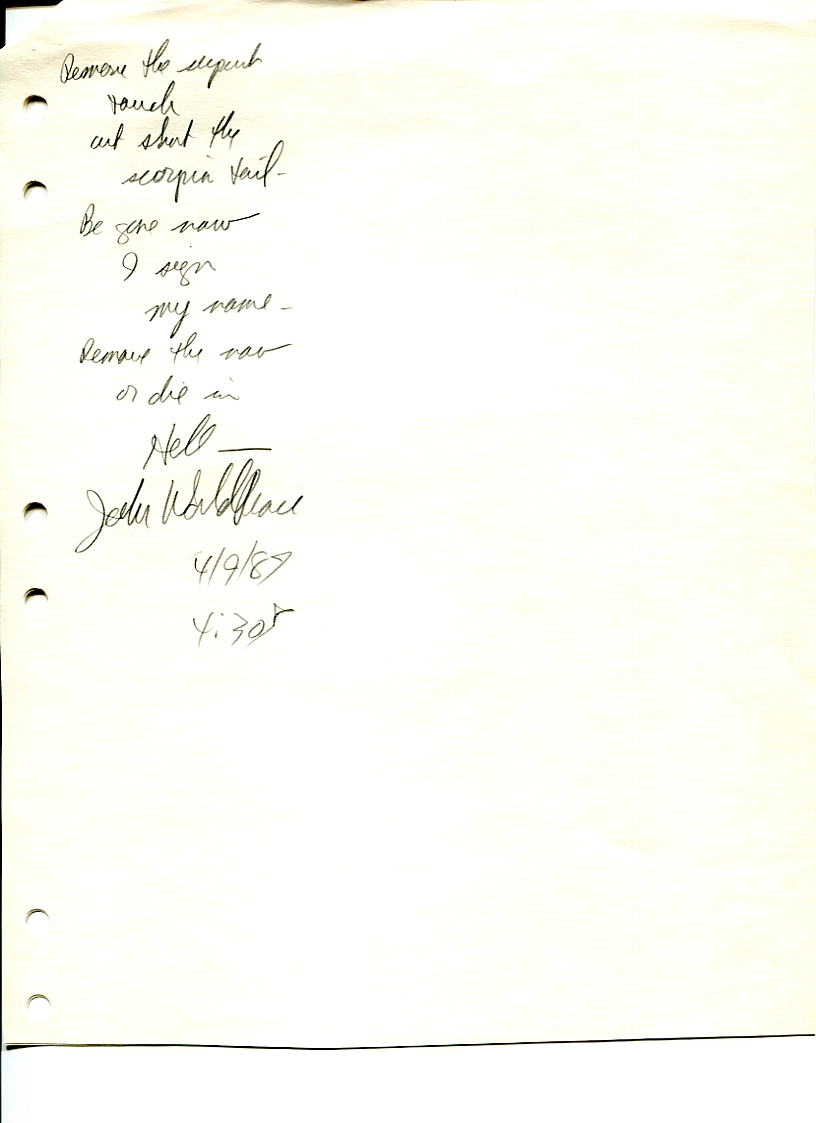 Remove the serpent
touch
cut short the
scorpion tail-
Be gone now
I sign
my name-
Remove the now
or die in
Hell —
John WorldPeace
4/9/87
4:30P